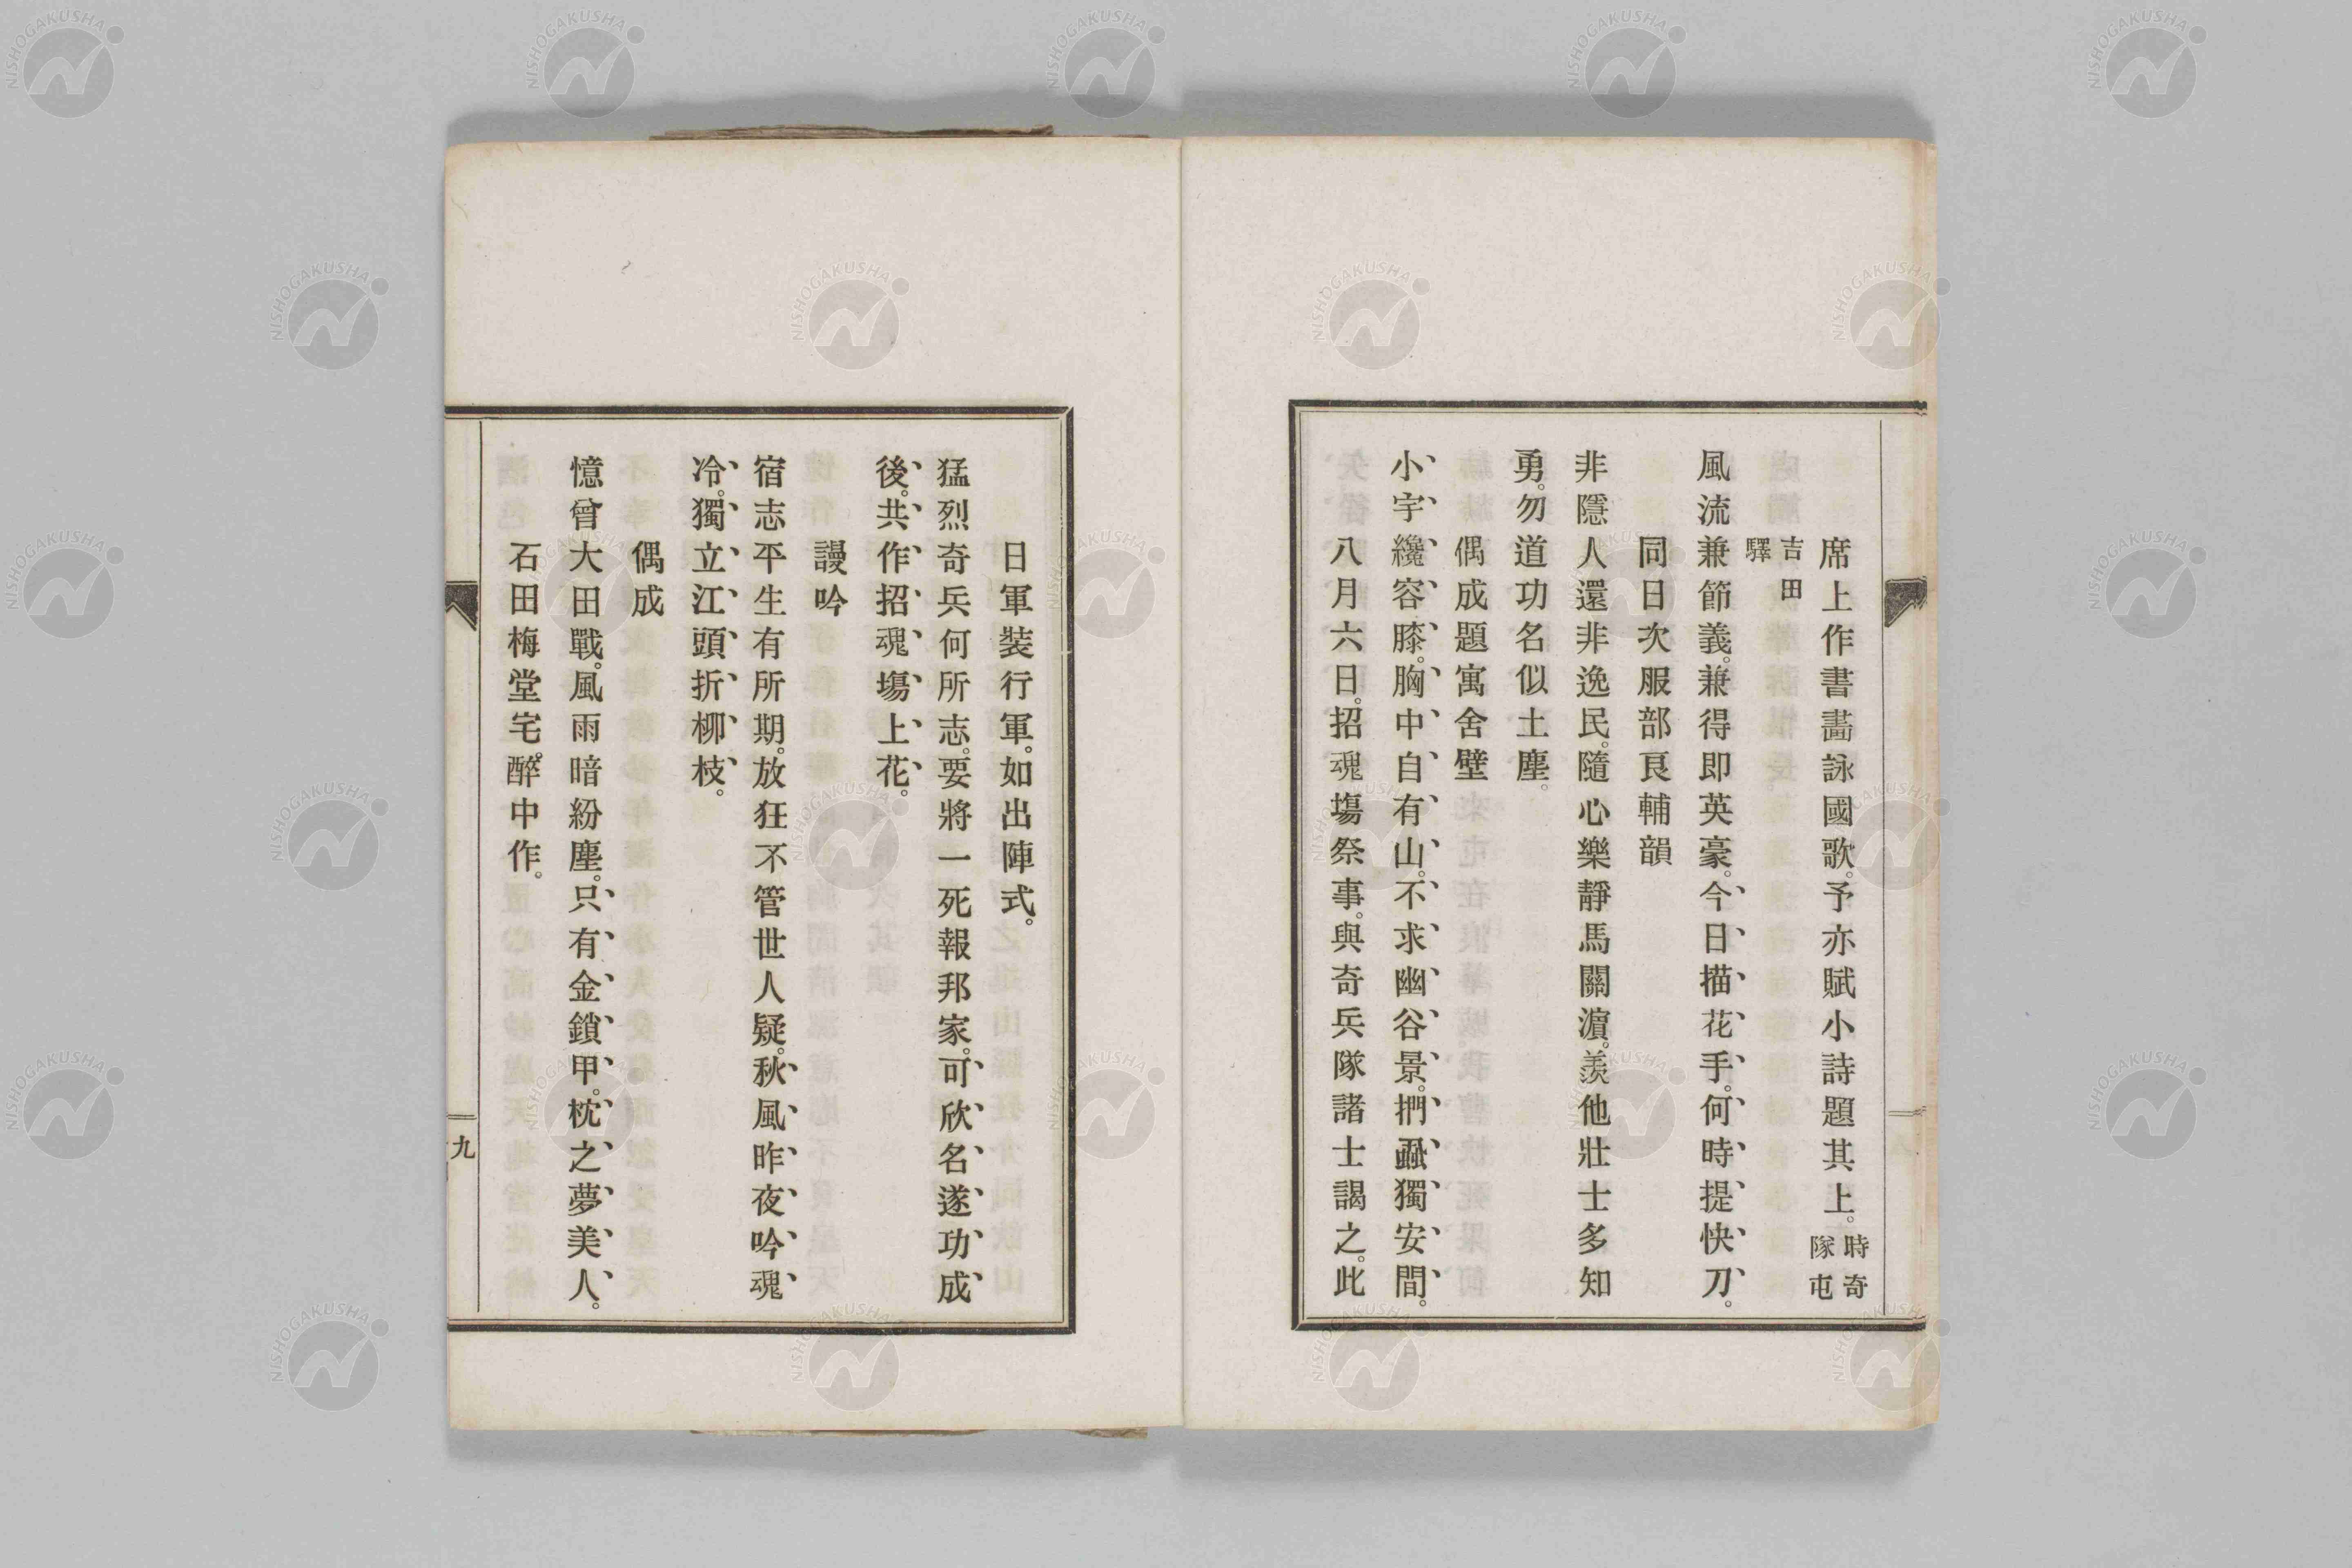 席上作書畵詠國歌。予亦賦小詩題其上。時奇隊屯
吉田驛
風流兼節義。兼得即英豪。今日描花手。何時提快刀。
同日次服部良輔韻
非隱人還非逸民。隨心樂靜馬關濵。羨他壯士多知
勇。勿道功名似土塵。
偶成題寓舍壁
小宇纔容膝。胸中自有山。不求幽谷景。捫蝨獨安間。
八月六日。招魂塲祭事。與奇兵隊諸士謁之。此
日軍裝行軍。如出陣式。
猛烈奇兵何所志。要將一死報邦家。可欣名遂功成
後。共作招魂塲上花。
謾吟
宿志平生有所期。放狂不管世人疑。秋風昨夜吟魂
冷。獨立江頭折柳枝。
偶成
憶曾大田戰。風雨暗紛塵。只有金鎖甲。枕之夢美人。
石田梅堂宅。醉中作。
九
NISHOGAKUSHA